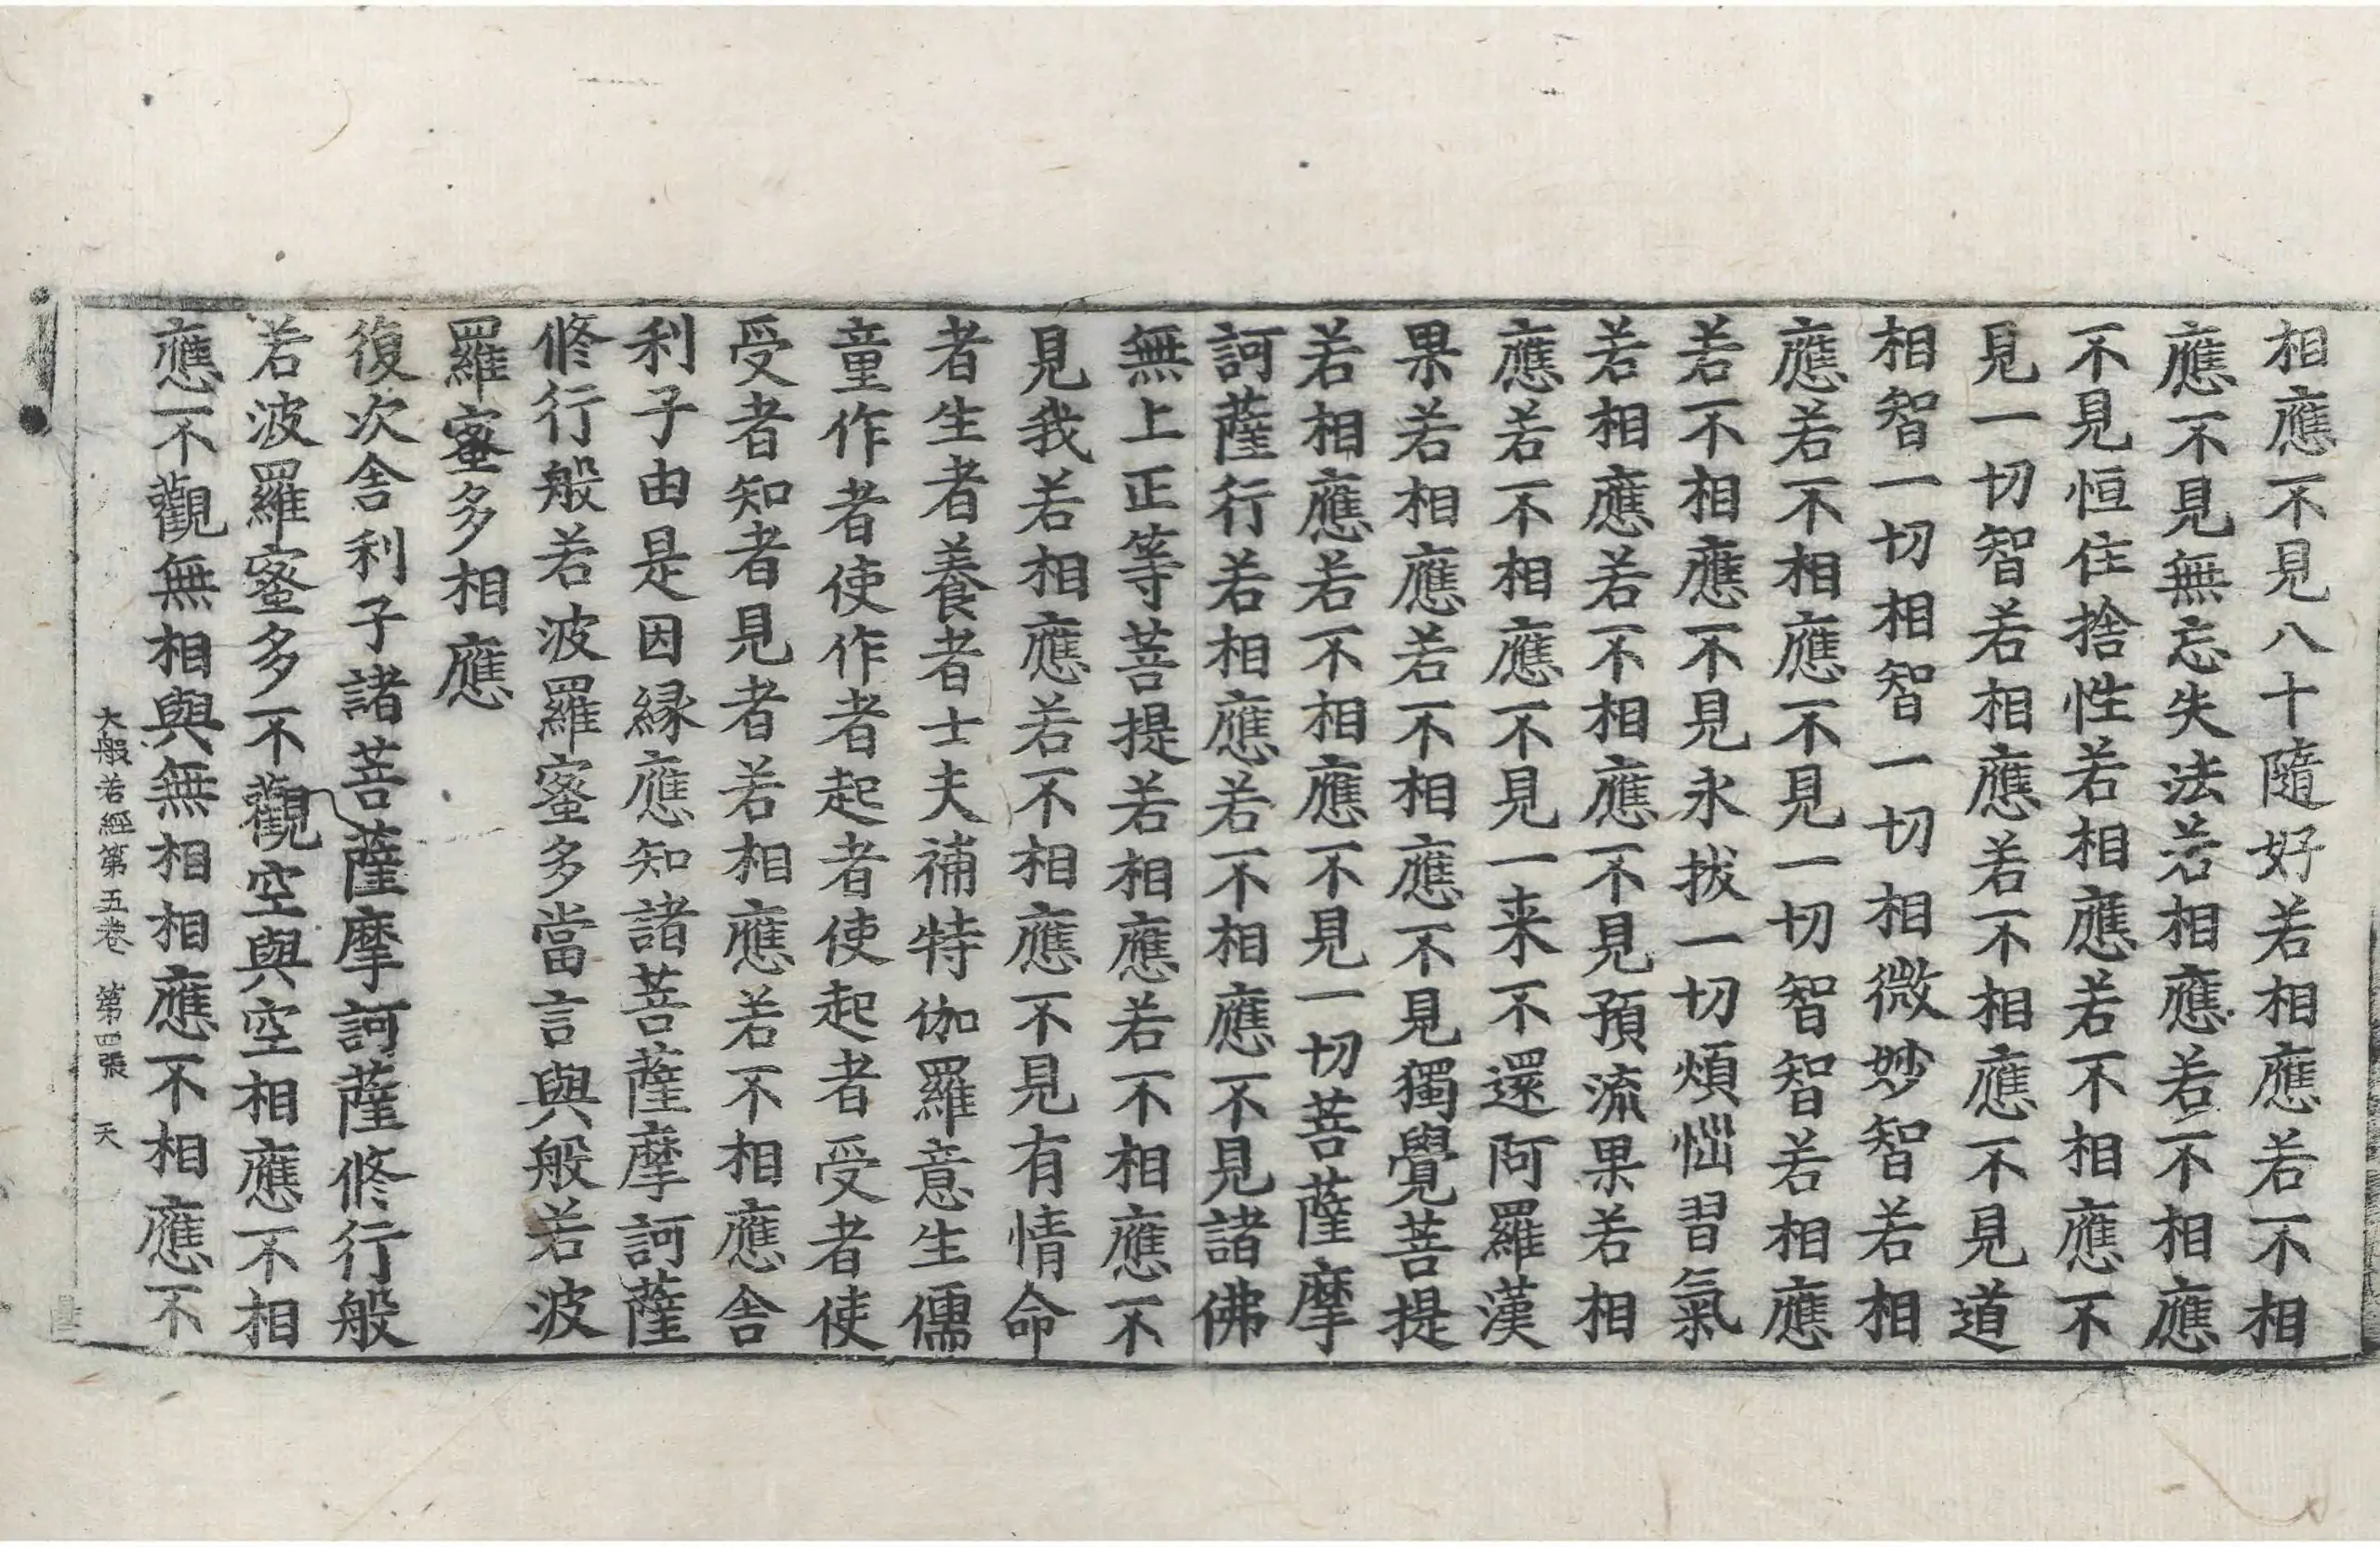 相應不見八十隨好若相應若不相
應不見無忘失法若相應若不相應
不見恒住捨性若相應若不相應不
見一切智若相應若不相應不見道
相智一切相智一切相微妙智若相
應若不相應不見一切智智若相應
若不相應不見永拔一切煩惱習氣
若相應若不相應不見預流果若相
應若不相應不見一来不還阿羅漢
果若相應若不相應不見獨覺菩提
若相應若不相應不見一切菩薩摩
訶薩行若相應若不相應不見諸佛
無上正等菩提若相應若不相應不
見我若相應若不相應不見有情命
者生者養者士夫補特伽羅意生儒
童作者使作者起者使起者受者使
受者知者見者若相應若不相應舎
利子由是因縁應知諸菩薩摩訶薩
修行般若波羅蜜多當言與般若波
羅蜜多相應
復次舎利子諸菩薩摩訶薩修行般
若波羅蜜多不觀空與空相應不相
應不觀無相與無相相應不相應不
大般若經第五卷 第四張 天